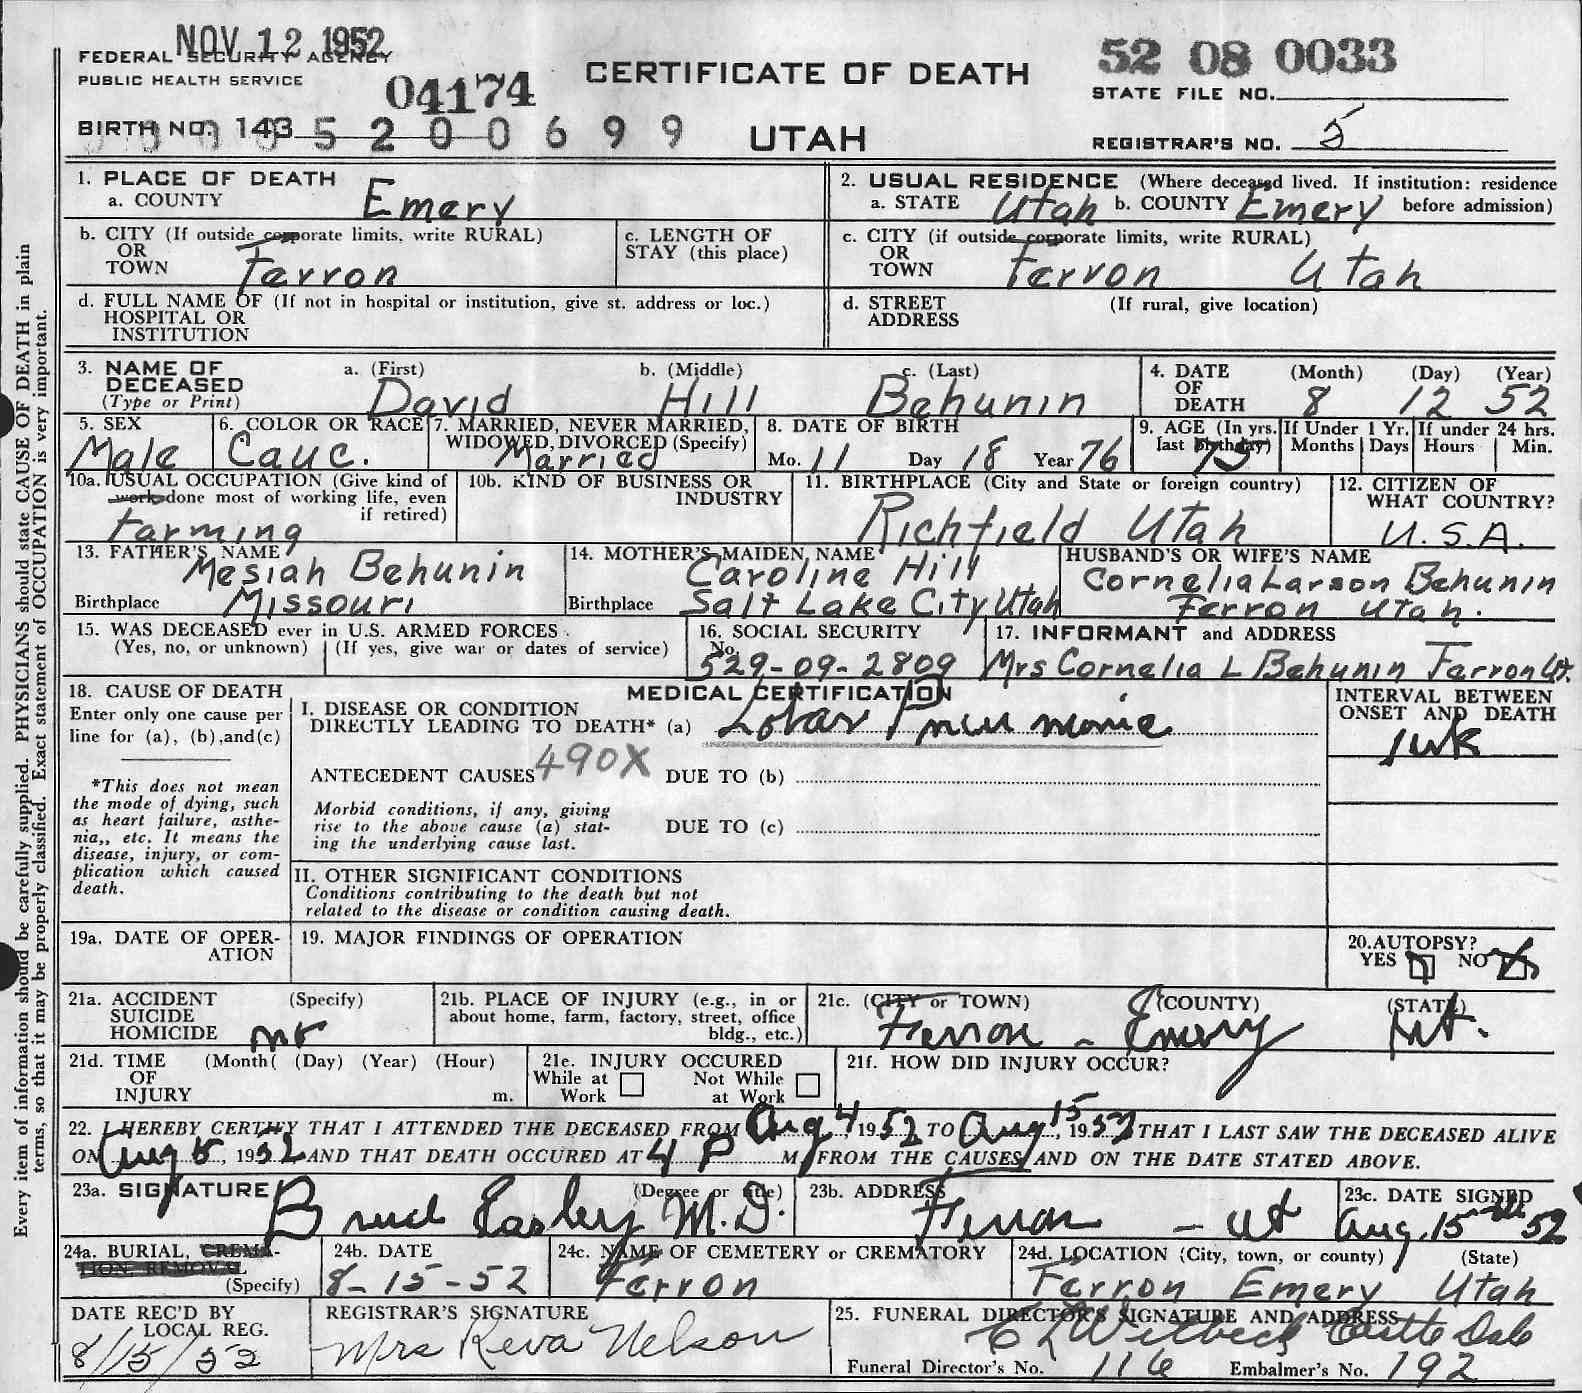 NOV 12 1952
FEDERAL SECURITY AGENCY
PUBLIC HEALTH SERVICE
04174
CERTIFICATE OF DEATH
UTAH
52 08 0033
STATE FILE NO.
BIRTH NO. 143
5200699
REGISTRAR'S NO. 5
1. PLACE OF DEATH
a. COUNTY Emery
2. USUAL RESIDENCE (Where deceased lived. If institution: residence
a. STATE Utah b. COUNTY Emery before admission)
b. CITY (If outside corporate limits, write RURAL)
OR
TOWN Ferron
c. LENGTH OF
STAY (this place)
c. CITY (if outside corporate limits, write RURAL)
OR
TOWN Ferron Utah
d. FULL NAME OF (If not in hospital or institution, give st. address or loc.)
HOSPITAL OR
INSTITUTION
d. STREET (If rural, give location)
ADDRESS
3. NAME OF
DECEASED
(Type or Print)
a. (First) b. (Middle) c. (Last)
David Hill Behunin
4. DATE (Month) (Day) (Year)
OF
DEATH 8 12 52
5. SEX
Male
6. COLOR OR RACE
Cauc.
7. MARRIED, NEVER MARRIED,
WIDOWED, DIVORCED (Specify)
Married
8. DATE OF BIRTH
Mo. 11 Day 18 Year 76
9. AGE (In yrs.
last birthday)
75
If Under 1 Yr.
Months Days
If under 24 hrs.
Hours Min.
10a. USUAL OCCUPATION (Give kind of
work done most of working life, even
if retired)
Farming
10b. KIND OF BUSINESS OR
INDUSTRY
11. BIRTHPLACE (City and State or foreign country)
Richfield Utah
12. CITIZEN OF
WHAT COUNTRY?
U.S.A.
13. FATHER'S NAME
Mesiah Behunin
Birthplace Missouri
14. MOTHER'S MAIDEN NAME
Caroline Hill
Birthplace Salt Lake City Utah
HUSBAND'S OR WIFE'S NAME
Cornelia Larson Behunin
Ferron Utah.
15. WAS DECEASED ever in U.S. ARMED FORCES
(Yes, no, or unknown) (If yes, give war or dates of service)
16. SOCIAL SECURITY
No.
529-09-2809
17. INFORMANT and ADDRESS
Mrs Cornelia L Behunin Ferron Ut.
18. CAUSE OF DEATH
Enter only one cause per
line for (a), (b), and (c)
*This does not mean
the mode of dying, such
as heart failure, asthe-
nia,, etc. It means the
disease, injury, or com-
plication which caused
death.
MEDICAL CERTIFICATION
I. DISEASE OR CONDITION
DIRECTLY LEADING TO DEATH* (a) Lobar Pneumonia
ANTECEDENT CAUSES 490X DUE TO (b)
Morbid conditions, if any, giving
rise to the above cause (a) stat-
ing the underlying cause last.
DUE TO (c)
II. OTHER SIGNIFICANT CONDITIONS
Conditions contributing to the death but not
related to the disease or condition causing death.
INTERVAL BETWEEN
ONSET AND DEATH
1 wk
19a. DATE OF OPER-
ATION
19. MAJOR FINDINGS OF OPERATION
20. AUTOPSY?
YES NO
21a. ACCIDENT (Specify)
SUICIDE
HOMICIDE
21b. PLACE OF INJURY (e.g., in or
about home, farm, factory, street, office
bldg., etc.)
21c. (CITY or TOWN) (COUNTY) (STATE)
Ferron - Emery Ut.
21d. TIME (Month( (Day) (Year) (Hour)
OF
INJURY m.
21e. INJURY OCCURED
While at Work Not While at Work
21f. HOW DID INJURY OCCUR?
22. I HEREBY CERTIFY THAT I ATTENDED THE DECEASED FROM Aug 4, 1952 TO Aug 15, 1952 THAT I LAST SAW THE DECEASED ALIVE
ON Aug 5, 1952 AND THAT DEATH OCCURED AT 4 P M, FROM THE CAUSES AND ON THE DATE STATED ABOVE.
23a. SIGNATURE (Degree or title)
Easley M.D.
23b. ADDRESS
Ferron - Ut
23c. DATE SIGNED
Aug. 15th 52
24a. BURIAL, CREMA-
TION, REMOVAL
(Specify)
24b. DATE
8-15-52
24c. NAME OF CEMETERY or CREMATORY
Ferron
24d. LOCATION (City, town, or county) (State)
Ferron Emery Utah
DATE REC'D BY
LOCAL REG.
8/15/52
REGISTRAR'S SIGNATURE
Mrs Reva Nelson
25. FUNERAL DIRECTOR'S SIGNATURE AND ADDRESS
C L Wilbeck Castle Dale
Funeral Director's No. 116 Embalmer's No. 192
Every item of information should be carefully supplied. PHYSICIANS should state CAUSE OF DEATH in plain
terms, so that it may be properly classified. Exact statement of OCCUPATION is very important.